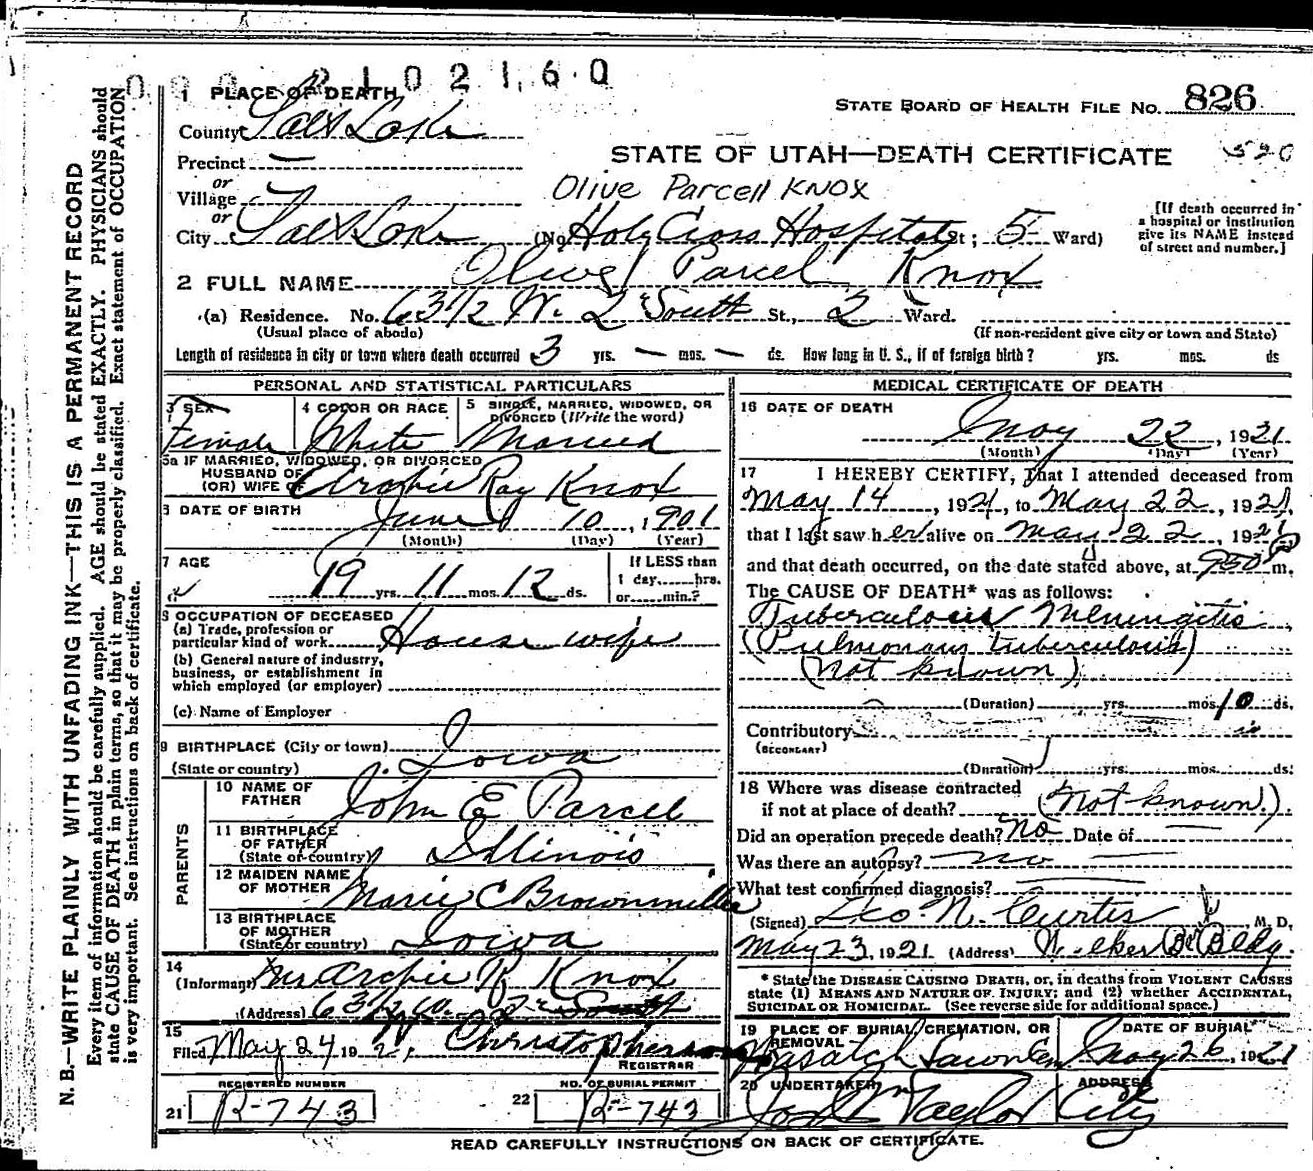 2102160
1 PLACE OF DEATH
STATE BOARD OF HEALTH FILE No. 826
County Salt Lake
STATE OF UTAH—DEATH CERTIFICATE 520
Precinct —
or
Village
Olive Parcell KNOX
or
City Salt Lake (No. Holy Cross Hospital St; 5 Ward)
[If death occurred in a hospital or institution give its NAME instead of street and number.]
2 FULL NAME Olive Parcel Knox
(a) Residence. No. 63½ W. 2 South St., 2 Ward.
(Usual place of abode) (If non-resident give city or town and State)
Length of residence in city or town where death occurred 3 yrs. — mos. — ds. How long in U. S., if of foreign birth? yrs. mos. ds
PERSONAL AND STATISTICAL PARTICULARS
3 SEX Female
4 COLOR OR RACE White
5 SINGLE, MARRIED, WIDOWED, OR DIVORCED (Write the word) Married
5a IF MARRIED, WIDOWED, OR DIVORCED
HUSBAND OF
(OR) WIFE OF Archie Ray Knox
6 DATE OF BIRTH June 10, 1901
(Month) (Day) (Year)
7 AGE 19 yrs. 11 mos. 12 ds.
If LESS than
1 day, hrs.
or min.?
8 OCCUPATION OF DECEASED
(a) Trade, profession or
particular kind of work House wife
(b) General nature of industry,
business, or establishment in
which employed (or employer)
(c) Name of Employer
9 BIRTHPLACE (City or town)
(State or country) Iowa
PARENTS
10 NAME OF FATHER John E Parcel
11 BIRTHPLACE OF FATHER (State or country) Illinois
12 MAIDEN NAME OF MOTHER Marie C Brownmiller
13 BIRTHPLACE OF MOTHER (State or country) Iowa
14
(Informant) Mr Archie R Knox
(Address) 63½ W. 2 South
15
Filed May 24 1921, Christopherson
REGISTRAR
REGISTERED NUMBER
21 R-743
NO. OF BURIAL PERMIT
22 R-743
MEDICAL CERTIFICATE OF DEATH
16 DATE OF DEATH
May 22, 1921
(Month) (Day) (Year)
17 I HEREBY CERTIFY, That I attended deceased from
May 14, 1921, to May 22, 1921,
that I last saw her alive on May 22, 1921
and that death occurred, on the date stated above, at 950 P m.
The CAUSE OF DEATH* was as follows:
Tuberculous Meningitis
(Pulmonary tuberculosis)
(not known)
(Duration) yrs. mos. 10 ds.
Contributory
(SECONDARY)
(Duration) yrs. mos. ds.
18 Where was disease contracted
if not at place of death? (Not known.)
Did an operation precede death? No Date of —
Was there an autopsy? no —
What test confirmed diagnosis? —
(Signed) Geo. N. Curtis, M. D.
May 23, 1921 (Address) Walker Bk Bldg.
* State the DISEASE CAUSING DEATH, or, in deaths from VIOLENT CAUSES
state (1) MEANS AND NATURE OF INJURY; and (2) whether ACCIDENTAL,
SUICIDAL OR HOMICIDAL. (See reverse side for additional space.)
19 PLACE OF BURIAL, CREMATION, OR REMOVAL Wasatch Lawn Cem
DATE OF BURIAL May 26, 1921
20 UNDERTAKER Jos Wm Taylor
ADDRESS City
READ CAREFULLY INSTRUCTIONS ON BACK OF CERTIFICATE.
N. B.—WRITE PLAINLY WITH UNFADING INK—THIS IS A PERMANENT RECORD
Every item of information should be carefully supplied. AGE should be stated EXACTLY. PHYSICIANS should
state CAUSE OF DEATH in plain terms, so that it may be properly classified. Exact statement of OCCUPATION
is very important. See instructions on back of certificate.